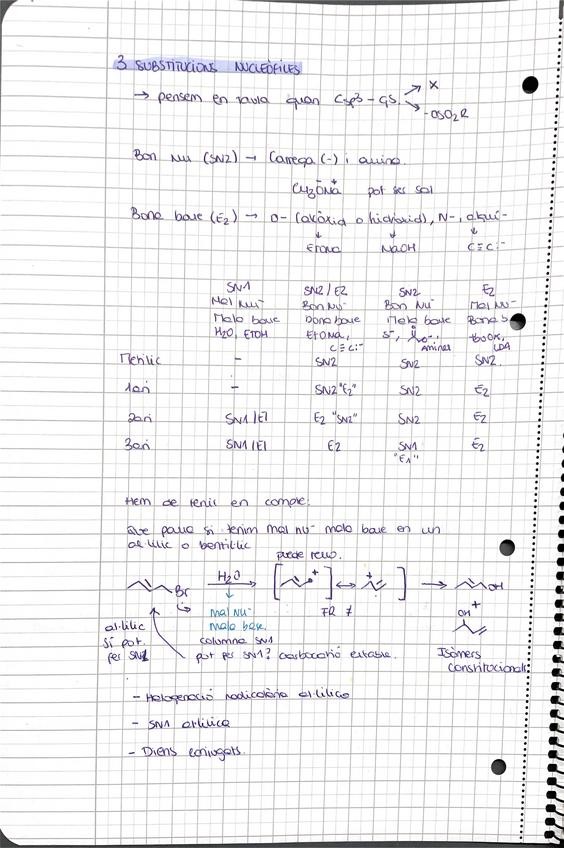 3 SUBSTITUCIONS NUCLEÒFILES
→ pensem en taula quan Csp3 - GS. X
-OSO2R
Bon Nu (SN2) → Càrrega (-) i amina.
CH3O⁻Na⁺ pot ser sal
Bona base (E2) → O- (alcòxid o hidròxid), N-, alquí-
EtONa NaOH C≡C:⁻
SN1 SN2/E2 SN2 E2
Mal Nu⁻ Bon Nu⁻ Bon Nu⁻ Mal Nu⁻
Mala base Bona base Mala base Bona b
H2O, EtOH EtONa, S⁻, O⁻, tBuOK,
C≡C:⁻ Amines LDA
Metílic - SN2 SN2 SN2.
1ari - SN2 "E2" SN2 E2
2ari SN1/E1 E2 "SN2" SN2 E2
3ari SN1/E1 E2 SN1 E2
"E1"
Hem de tenir en compte:
Què passa si tenim mal nu⁻ mala base en un
al·lílic o benzílic
puede reso.
Br H2O + ↔ + → OH
mal Nu⁻ FR ≠ +
mala base. OH
al·lílic columna SN1
Sí pot pot fer SN1? carbocatió estable. Isòmers
fer SN1 Constitucionals
- Halogenació radicalària al·lílica
- SN1 al·lílica
- Diens conjugats.